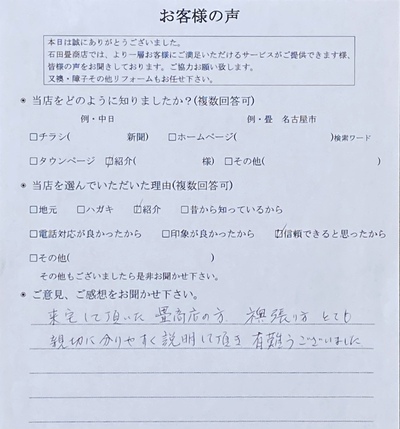 お客様の声
本日は誠にありがとうございました。
石田畳商店では、より一層お客様にご満足いただけるサービスがご提供できます様、
皆様の声をお聞きしております。ご協力お願い致します。
又襖・障子その他リフォームもお任せ下さい。
＊ 当店をどのように知りましたか？(複数回答可)
例・中日 例・畳 名古屋市
□チラシ( 新聞) □ホームページ( )検索ワード
□タウンページ ☑紹介( 様) □その他( )
＊ 当店を選んでいただいた理由(複数回答可)
□地元 □ハガキ ☑紹介 □昔から知っているから
□電話対応が良かったから □印象が良かったから ☑信頼できると思ったから
□その他( )
その他もございましたら是非お聞かせ下さい。
＊ ご意見、ご感想をお聞かせ下さい。
来宅して頂いた 畳商店の方、襖張り方 とても
親切に分りやすく説明して頂き 有難うございました